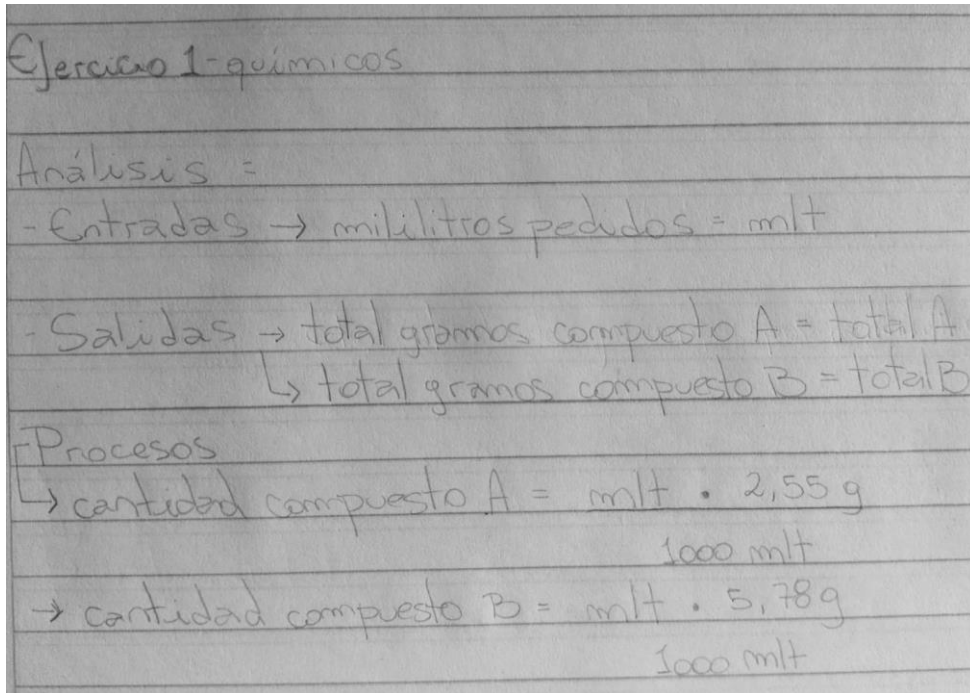 Ejercicio 1-químicos
Análisis =
- Entradas → mililitros pedidos = mlt
- Salidas → total gramos compuesto A = total A
↳ total gramos compuesto B = total B
- Procesos
↳ cantidad compuesto A = mlt . 2,55 g
1000 mlt
→ cantidad compuesto B = mlt . 5,78g
1000 mlt